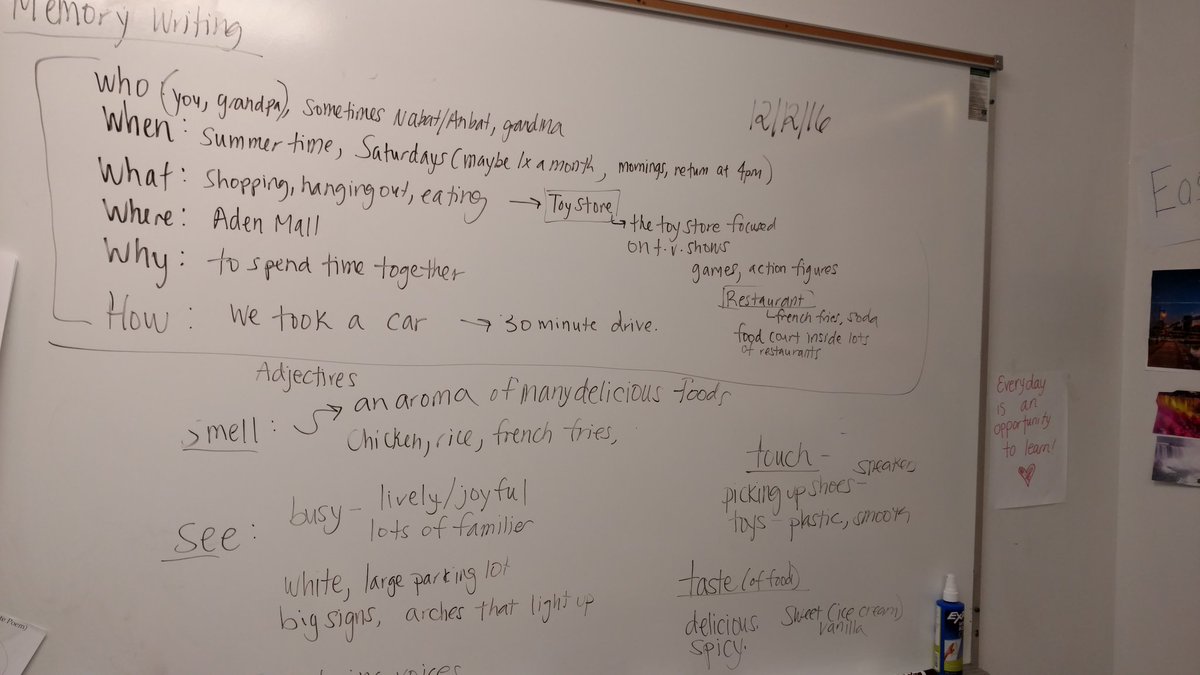 Memory Writing
12/12/16
Who (you, grandpa), sometimes Nabat/Anbat, grandma
When: Summer time, Saturdays (maybe 1x a month, mornings, return at 4pm)
What: Shopping, hanging out, eating → Toy Store
↳ the toy store focused
on t.v. shows
games, action figures
Where: Aden Mall
Why: to spend time together
Restaurant
↳ french fries, soda
food court inside lots
of restaurants
How: We took a car → 30 minute drive.
Adjectives
smell: → an aroma of many delicious foods
Chicken, rice, french fries,
see: busy - lively/joyful
lots of familier
white, large parking lot
big signs, arches that light up
voices
touch -
picking up shoes - speakers
toys - plastic, smooth
taste (of food)
delicious sweet (ice cream)
spicy. vanilla
Everyday
is an
opportunity
to learn!
Eas
e Poem)
EX